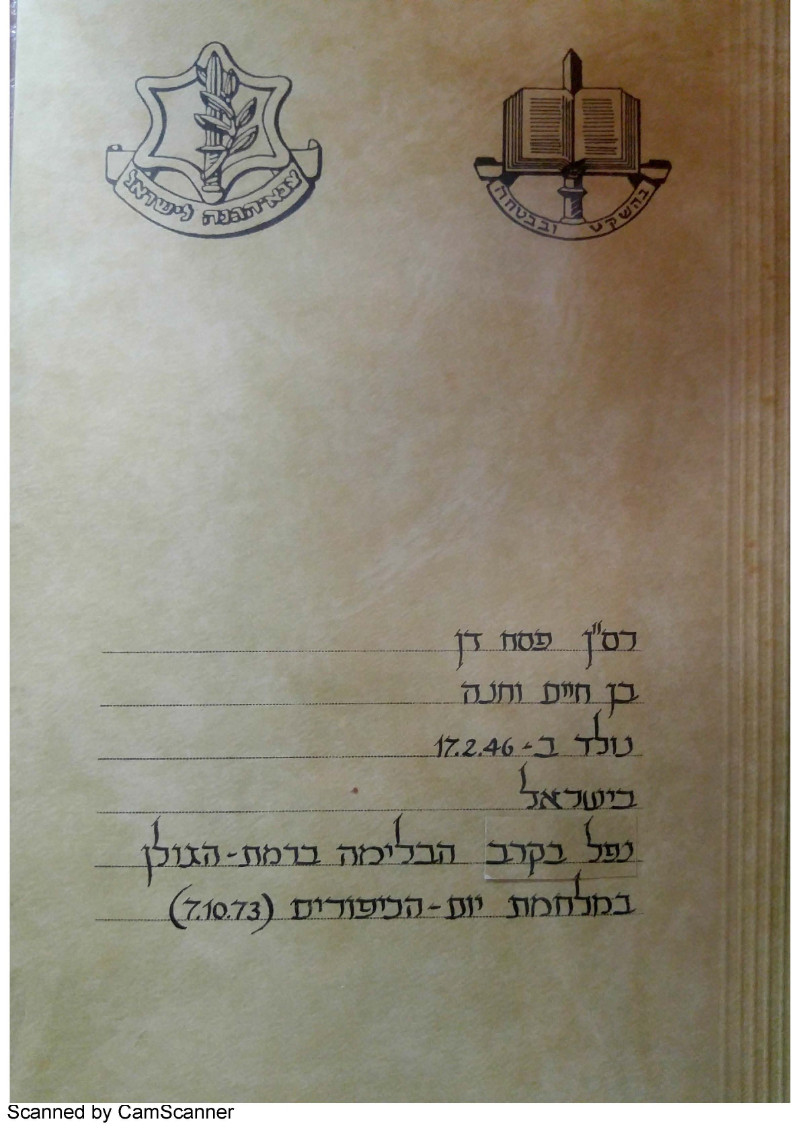 צבא הגנה לישראל
בהשקט ובבטחה
רס"ן פסח דן
בן חיים וחנה
נולד ב-17.2.46
בישראל
נפל בקרב הבלימה ברמת-הגולן
במלחמת יום-הכיפורים (7.10.73)
Scanned by CamScanner